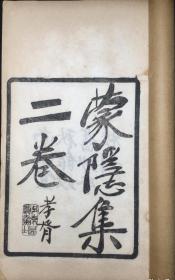 蒙隱集
二卷
孝胥